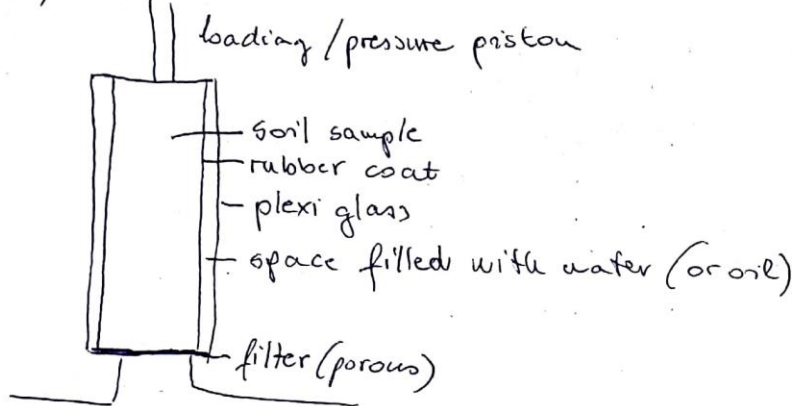 loading / pressure piston
soil sample
rubber coat
plexi glass
space filled with water (or oil)
filter (porous)